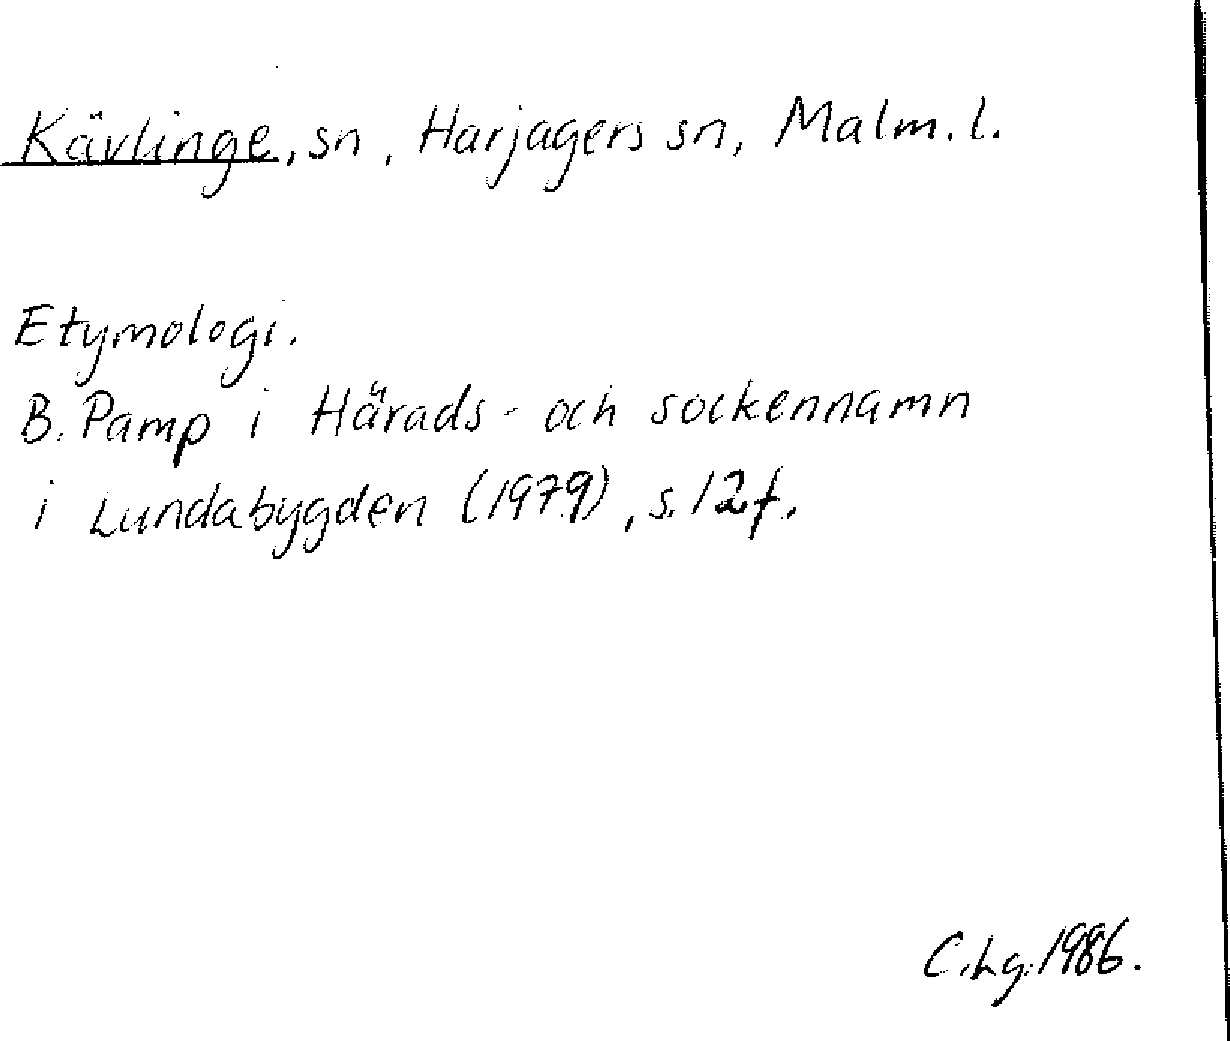 Kävlinge, sn, Harjagers sn, Malm. l.
Etymologi.
B. Pamp i Härads- och sockennamn
i Lundabygden (1979), s. 12f.
C. Lg. 1986.